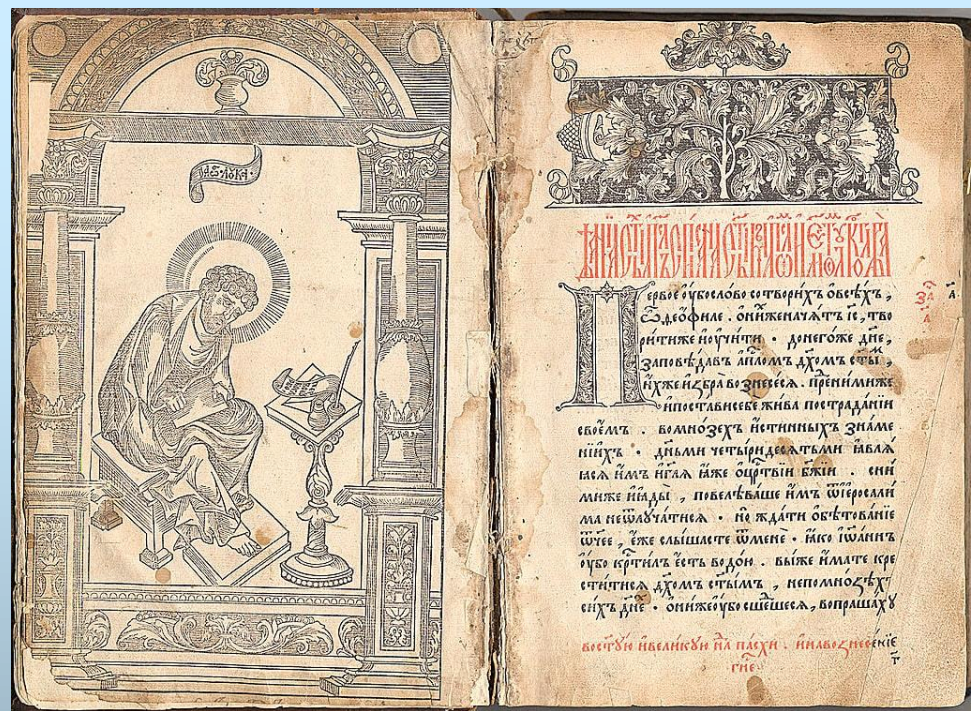 ст҃ы лꙋка
Дѣѧнїѧ ст҃ыхъ ап҃лъ
Первое ᲂу҆бо сло́во сотвори́хъ ѻ҆ всѣ́хъ ,
ѽ ѳео́филе . ѡ҆ ни́хже нача́тъ і҆с҃ , тво
ри́тиже и҆ ᲂу҆чи́ти . до него́же дн҃е ,
заповѣ́давъ а҆пⷭ҇ломъ дх҃омъ ст҃ы́мъ ,
и҆́хже и҆збра̀ вознесе́сѧ . пре́ними же
и҆ поста́ви себѐ жи́ва по страда́нїи
свое́мъ . во мно́зехъ и҆́стинныхъ зна́ме
нїихъ . дньмѝ четы́ридесѧтьми ꙗ҆влѧ́
ꙗсѧ и҆̀мъ и҆ гл҃ѧ ꙗ҆́же ѻ҆ црⷭ҇твїи бж҃їи . сни́
миже и҆ ꙗ҆ды̀ , повелѣва́ше и҆̀мъ ѿ і҆еросали́
ма не ѿлꙋча́тисѧ . но жда́ти ѻ҆бѣтова́нїе
ѻ҆́тчее , е҆́же слы́шасте ѿ менѐ . ꙗ҆́ко і҆ѡа́ннъ
ᲂу҆́бо крⷭ҇ти́лъ є҆́сть водо́ю . вы́же и҆́мате кре
сти́тисѧ дх҃омъ ст҃ы́мъ , не по мно́зѣхъ
си́хъ дн҃е . ѻ҆ни́же ᲂу҆́бо сше́дшесѧ , вопраша́хꙋ
во ст҃ꙋ́ю и҆ вели́кꙋю нⷣлю па́схи . и҆ на вознесе́нїе
гн҃е